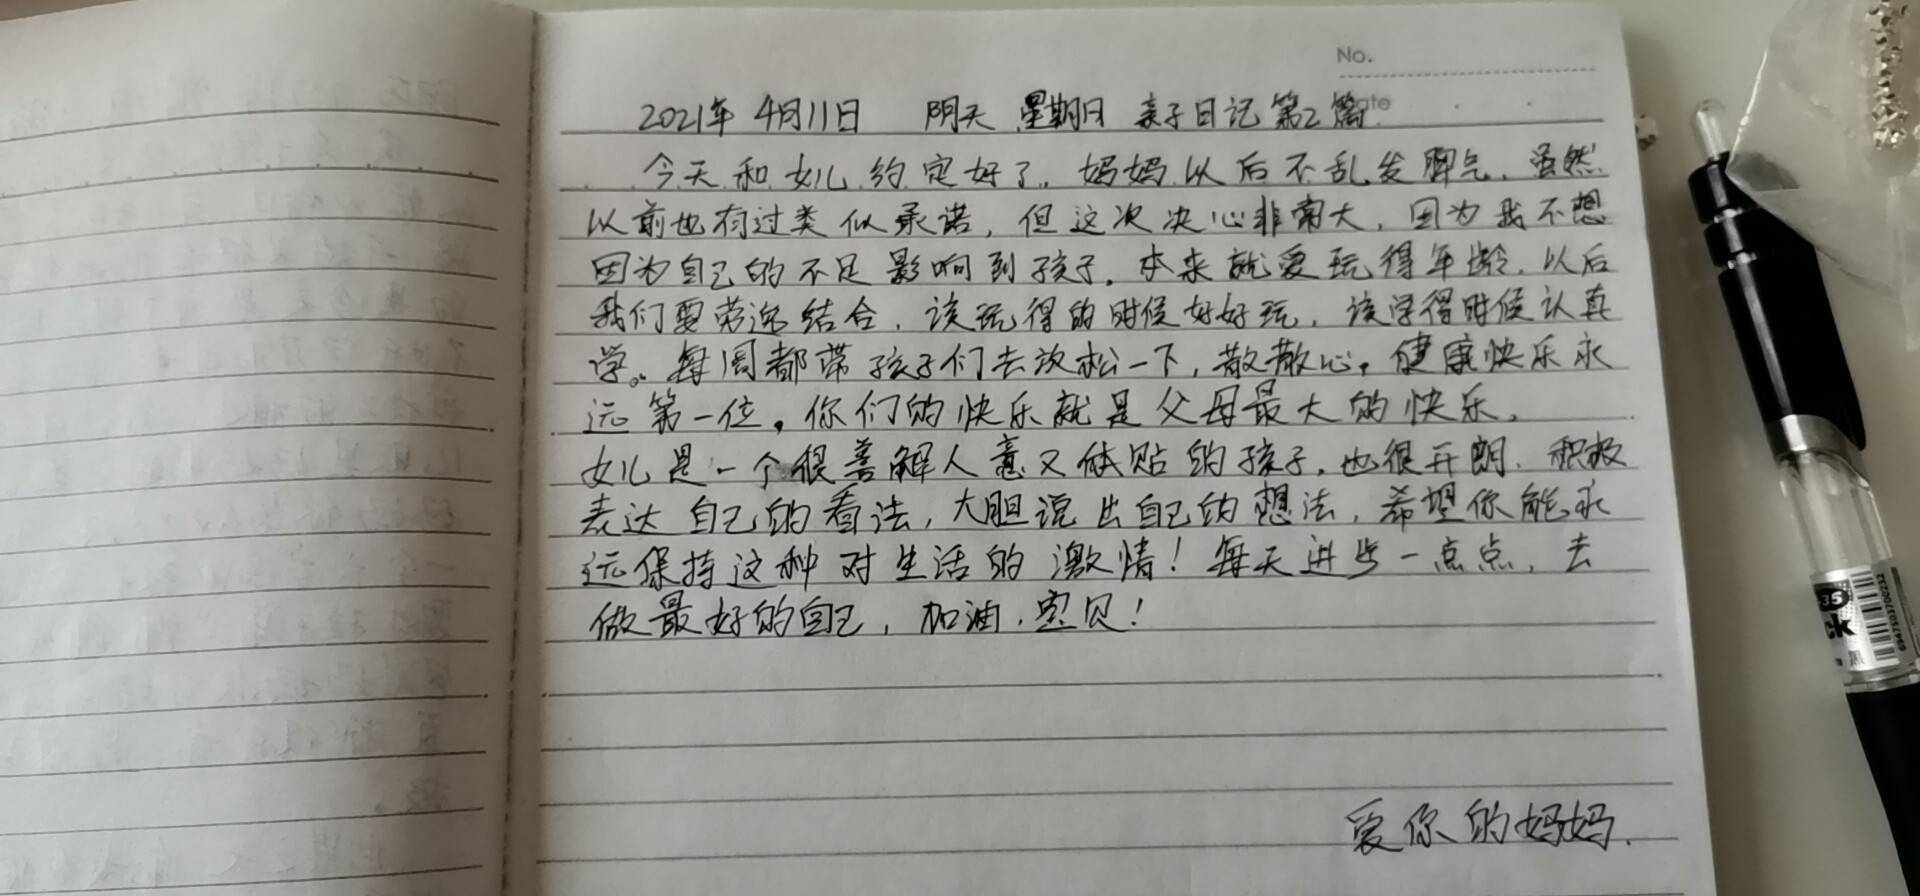 No.
Date
2021年 4月11日 阴天 星期日 亲子日记第2篇.
今天和女儿约定好了,妈妈以后不乱发脾气,虽然
以前也有过类似承诺,但这次决心非常大,因为我不想
因为自己的不足影响到孩子,本来就爱玩得年龄,以后
我们要劳逸结合,该玩得的时候好好玩,该学得时候认真
学。每周都带孩子们去放松一下,散散心,健康快乐永
远第一位,你们的快乐就是父母最大的快乐,
女儿是一个很善解人意又体贴的孩子,也很开朗,积极
表达自己的看法,大胆说出自己的想法,希望你能永
远保持这种对生活的激情!每天进步一点点,去
做最好的自己,加油,宝贝!
爱你的妈妈.
35
ck
黑
6947503700232